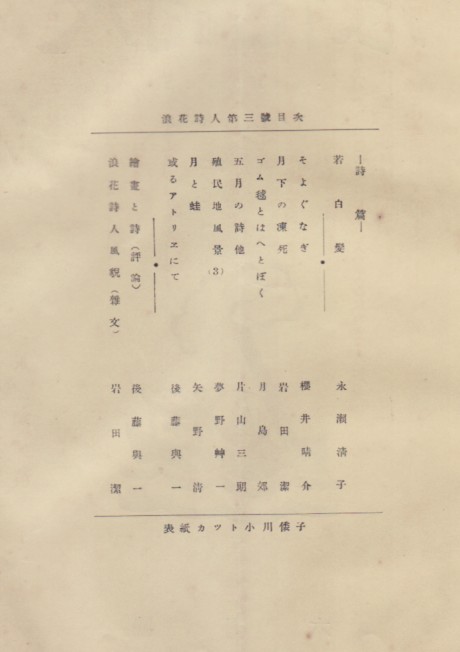 浪花詩人第三號目次
―詩篇―
若白髪 永瀬清子
そよぐなぎ 櫻井晴介
月下の凍死 岩田潔
ゴム毬とはへとぼく 月島
五月の詩他 片山三
殖民地風景(3) 夢野岬一
月と蛙 矢野清
或るアトリヱにて 後藤與一
繪畫と詩(評論) 後藤與一
浪花詩人風(雜文) 岩田潔
表紙カツト小川倭子